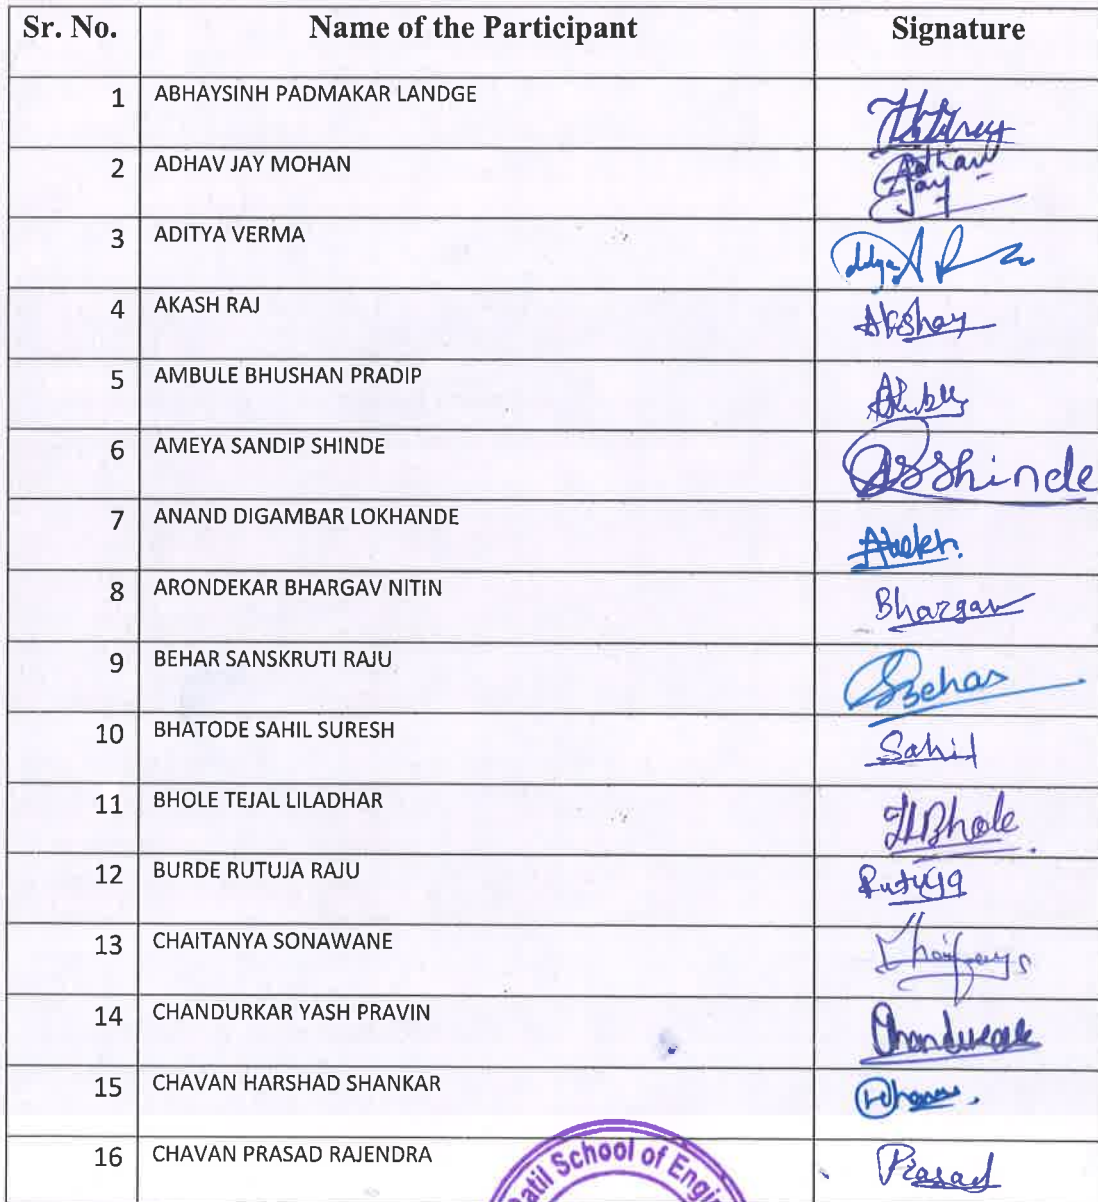 Sr. No. Name of the Participant Signature
1 ABHAYSINH PADMAKAR LANDGE
2 ADHAV JAY MOHAN Adhav
Jay
3 ADITYA VERMA
4 AKASH RAJ Akshay
5 AMBULE BHUSHAN PRADIP
6 AMEYA SANDIP SHINDE Shinde
7 ANAND DIGAMBAR LOKHANDE
8 ARONDEKAR BHARGAV NITIN Bhargav
9 BEHAR SANSKRUTI RAJU SBehar
10 BHATODE SAHIL SURESH Sahil
11 BHOLE TEJAL LILADHAR Bhole
12 BURDE RUTUJA RAJU Rutuja
13 CHAITANYA SONAWANE
14 CHANDURKAR YASH PRAVIN
15 CHAVAN HARSHAD SHANKAR
16 CHAVAN PRASAD RAJENDRA Prasad
School of